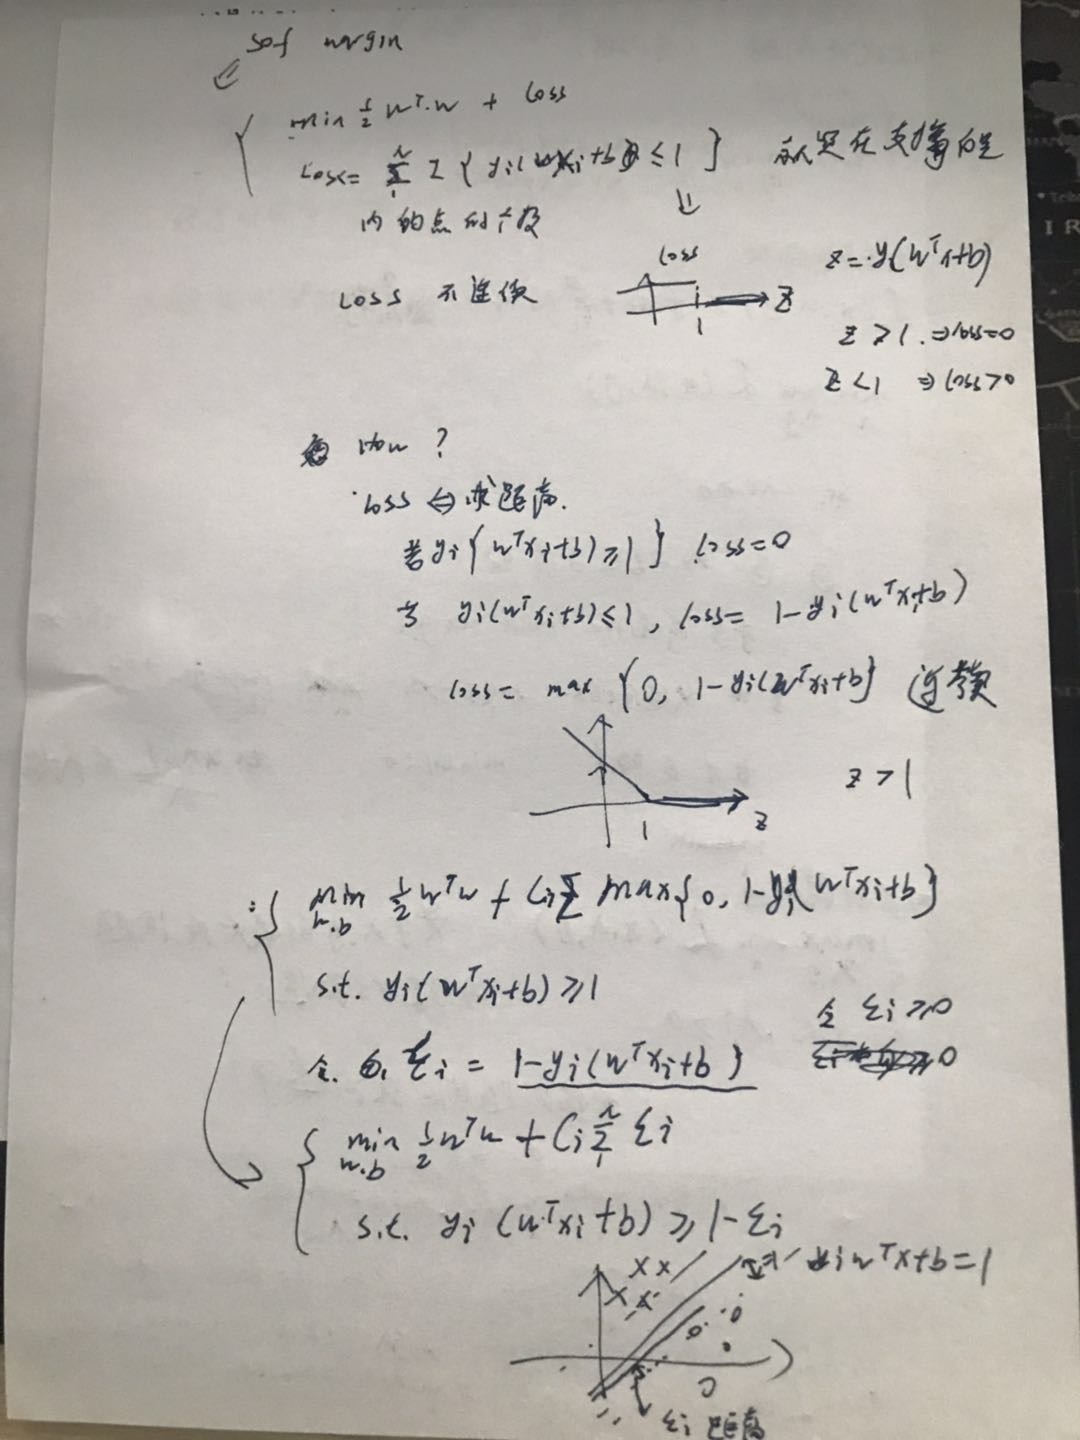 sof margin
min 1/2 w^T·w + Loss
Loss = Σ_1^n I{ yi(wxi+b) ≤ 1 } 认定在支撑向量
内的点的个数
Loss 不连续
loss
Z
1
z = y(w^T x+b)
z > 1. ⇒ loss=0
z < 1 ⇒ loss>0
How ?
loss ⇔ 求距离.
若 yi{ w^T xi+b) ≥ 1 } loss=0
若 yi(w^T xi+b) ≤ 1, loss= 1-yi(w^T xi+b)
loss= max {0, 1-yi(w^T xi+b} 连续
z > 1
1
z
min w.b 1/2 w^T w + Ci Σ max{0, 1-yi(w^T xi+b}
s.t. yi(w^T xi+b) ≥ 1
令 ξi ≥ 0
令. ξi = 1-yi(w^T xi+b)
min w.b 1/2 w^T w + Ci Σ_1^n ξi
s.t. yi (w^T xi+b) ≥ 1-ξi
yi w^T x+b = 1
x x
x x
ξi 距离